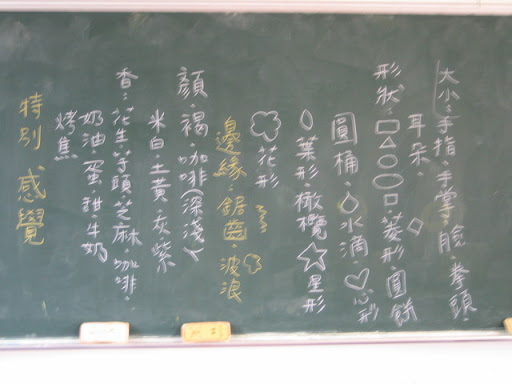 大小:手指、手掌、臉、拳頭
耳朵、
形狀:菱形、圓餅
圓桶、水滴、心形
葉形、橄欖、星形
花形
邊緣:鋸齒、波浪
顏:褐、咖啡(深淺)
米白、土黃、灰紫
香:花生、芋頭、芝麻、咖啡、
奶油、蛋、甜、牛奶
烤焦
特別、感覺